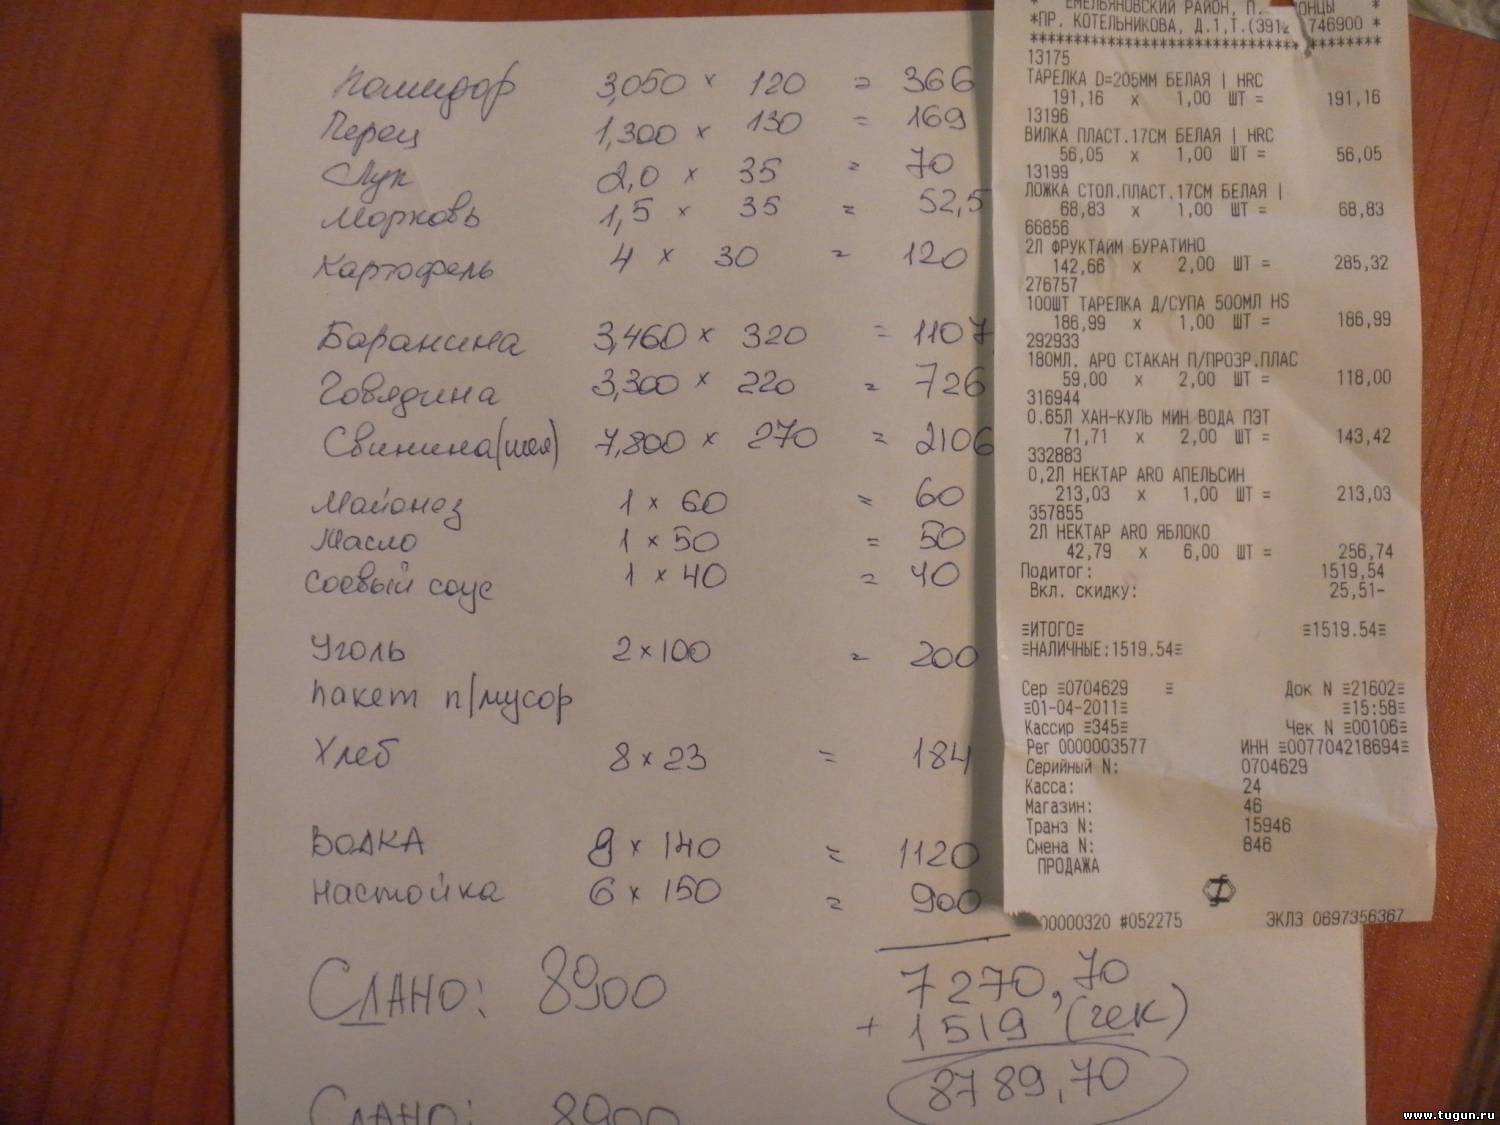 Помидор 3,050 × 120 = 366
Перец 1,300 × 130 = 169
Лук 2,0 × 35 = 70
Морковь 1,5 × 35 = 52,5
Картофель 4 × 30 = 120
Баранина 3,460 × 320 = 1107,
Говядина 3,300 × 220 = 726
Свинина(шея) 7,800 × 270 = 2106
Майонез 1 × 60 = 60
Масло 1 × 50 = 50
Соевый соус 1 × 40 = 40
Уголь 2 × 100 = 200
Пакет п/мусор
Хлеб 8 × 23 = 184
Водка 8 × 140 = 1120
Настойка 6 × 150 = 900
Сдано: 8900
7270,70
+ 1519 (чек)
8789,70
Сдано: 8900
* ЕМЕЛЬЯНОВСКИЙ РАЙОН, П. *
*ПР. КОТЕЛЬНИКОВА, Д.1,Т.(3912 746900 *
****************************************
13175
ТАРЕЛКА D=205ММ БЕЛАЯ | HRC
191,16 x 1,00 ШТ = 191,16
13196
ВИЛКА ПЛАСТ.17СМ БЕЛАЯ | HRC
56,05 x 1,00 ШТ = 56,05
13199
ЛОЖКА СТОЛ.ПЛАСТ.17СМ БЕЛАЯ |
68,83 x 1,00 ШТ = 68,83
66856
2Л ФРУКТАЙМ БУРАТИНО
142,66 x 2,00 ШТ = 285,32
276757
100ШТ ТАРЕЛКА Д/СУПА 500МЛ HS
186,99 x 1,00 ШТ = 186,99
292933
180МЛ. АРО СТАКАН П/ПРОЗР.ПЛАС
59,00 x 2,00 ШТ = 118,00
316944
0.65Л ХАН-КУЛЬ МИН ВОДА ПЭТ
71,71 x 2,00 ШТ = 143,42
332883
0,2Л НЕКТАР ARO АПЕЛЬСИН
213,03 x 1,00 ШТ = 213,03
357855
2Л НЕКТАР ARO ЯБЛОКО
42,79 x 6,00 ШТ = 256,74
Подитог: 1519,54
Вкл. скидку: 25,51-
≡ИТОГО≡ ≡1519.54≡
≡НАЛИЧНЫЕ:1519.54≡
Сер ≡0704629 ≡ Док N ≡21602≡
≡01-04-2011≡ ≡15:58≡
Кассир ≡345≡ Чек N ≡00106≡
Рег 0000003577 ИНН ≡007704218694≡
Серийный N: 0704629
Касса: 24
Магазин: 46
Транз N: 15946
Смена N: 846
ПРОДАЖА
00000320 #052275 ЭКЛЗ 0697356367
www.tugun.ru